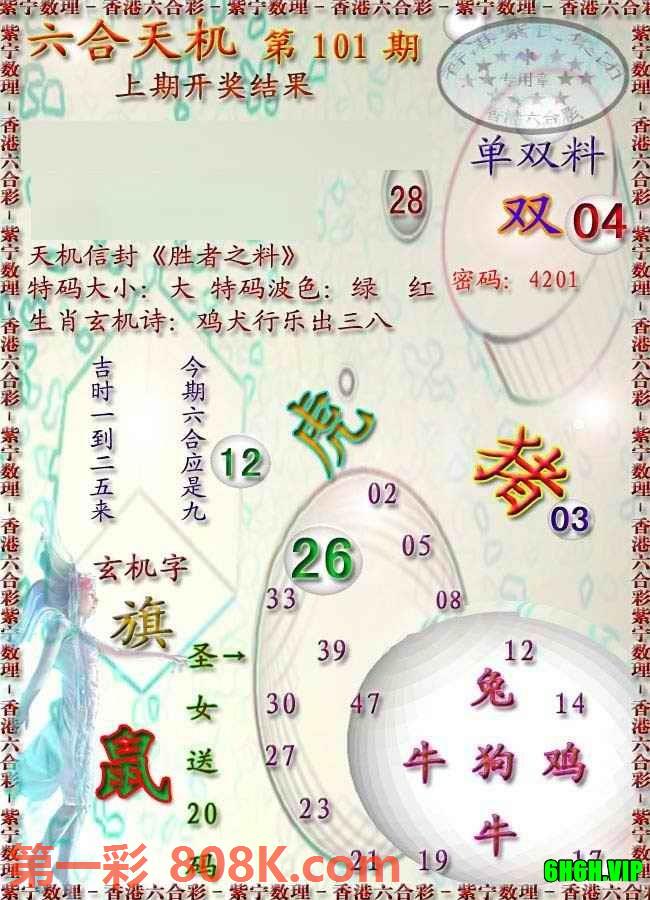 紫宁数理－香港六合彩－紫宁数理－香港六合彩－紫宁数理－香港六合彩
六合天机 第 101 期
上期开奖结果
专用章
香港六合彩
单双料
双 04
28
天机信封《胜者之料》
特码大小：大 特码波色：绿 红
密码：4201
生肖玄机诗：鸡犬行乐出三八
今期六合应是九
吉时一到二五来
12
虎
猪
03
玄机字
旗
鼠
圣→
女
送
20
码
02
26
05
33
08
39
12
30
47
兔
14
27
牛 狗 鸡
23
牛
21
19
17
第一彩 808K.com
6H6H.VIP
紫宁数理－香港六合彩－紫宁数理－香港六合彩－紫宁数理－香港六合彩